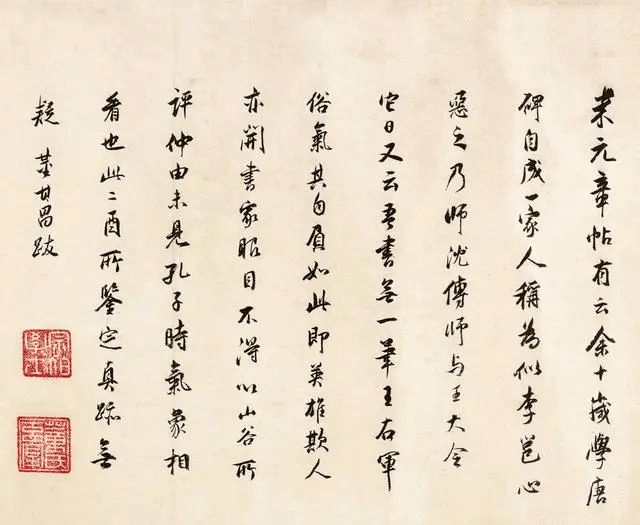 米元章帖有云余十歲學唐
碑自成一家人稱為似李邕心
惡之乃師沈傳師与王大令
它日又云吾書無一筆王右軍
俗氣其自負如此即英雄欺人
亦開書家眼目不得以山谷所
評仲由未見孔子時氣象相
看也此二酉所鑒定真跡無
疑 董其昌跋